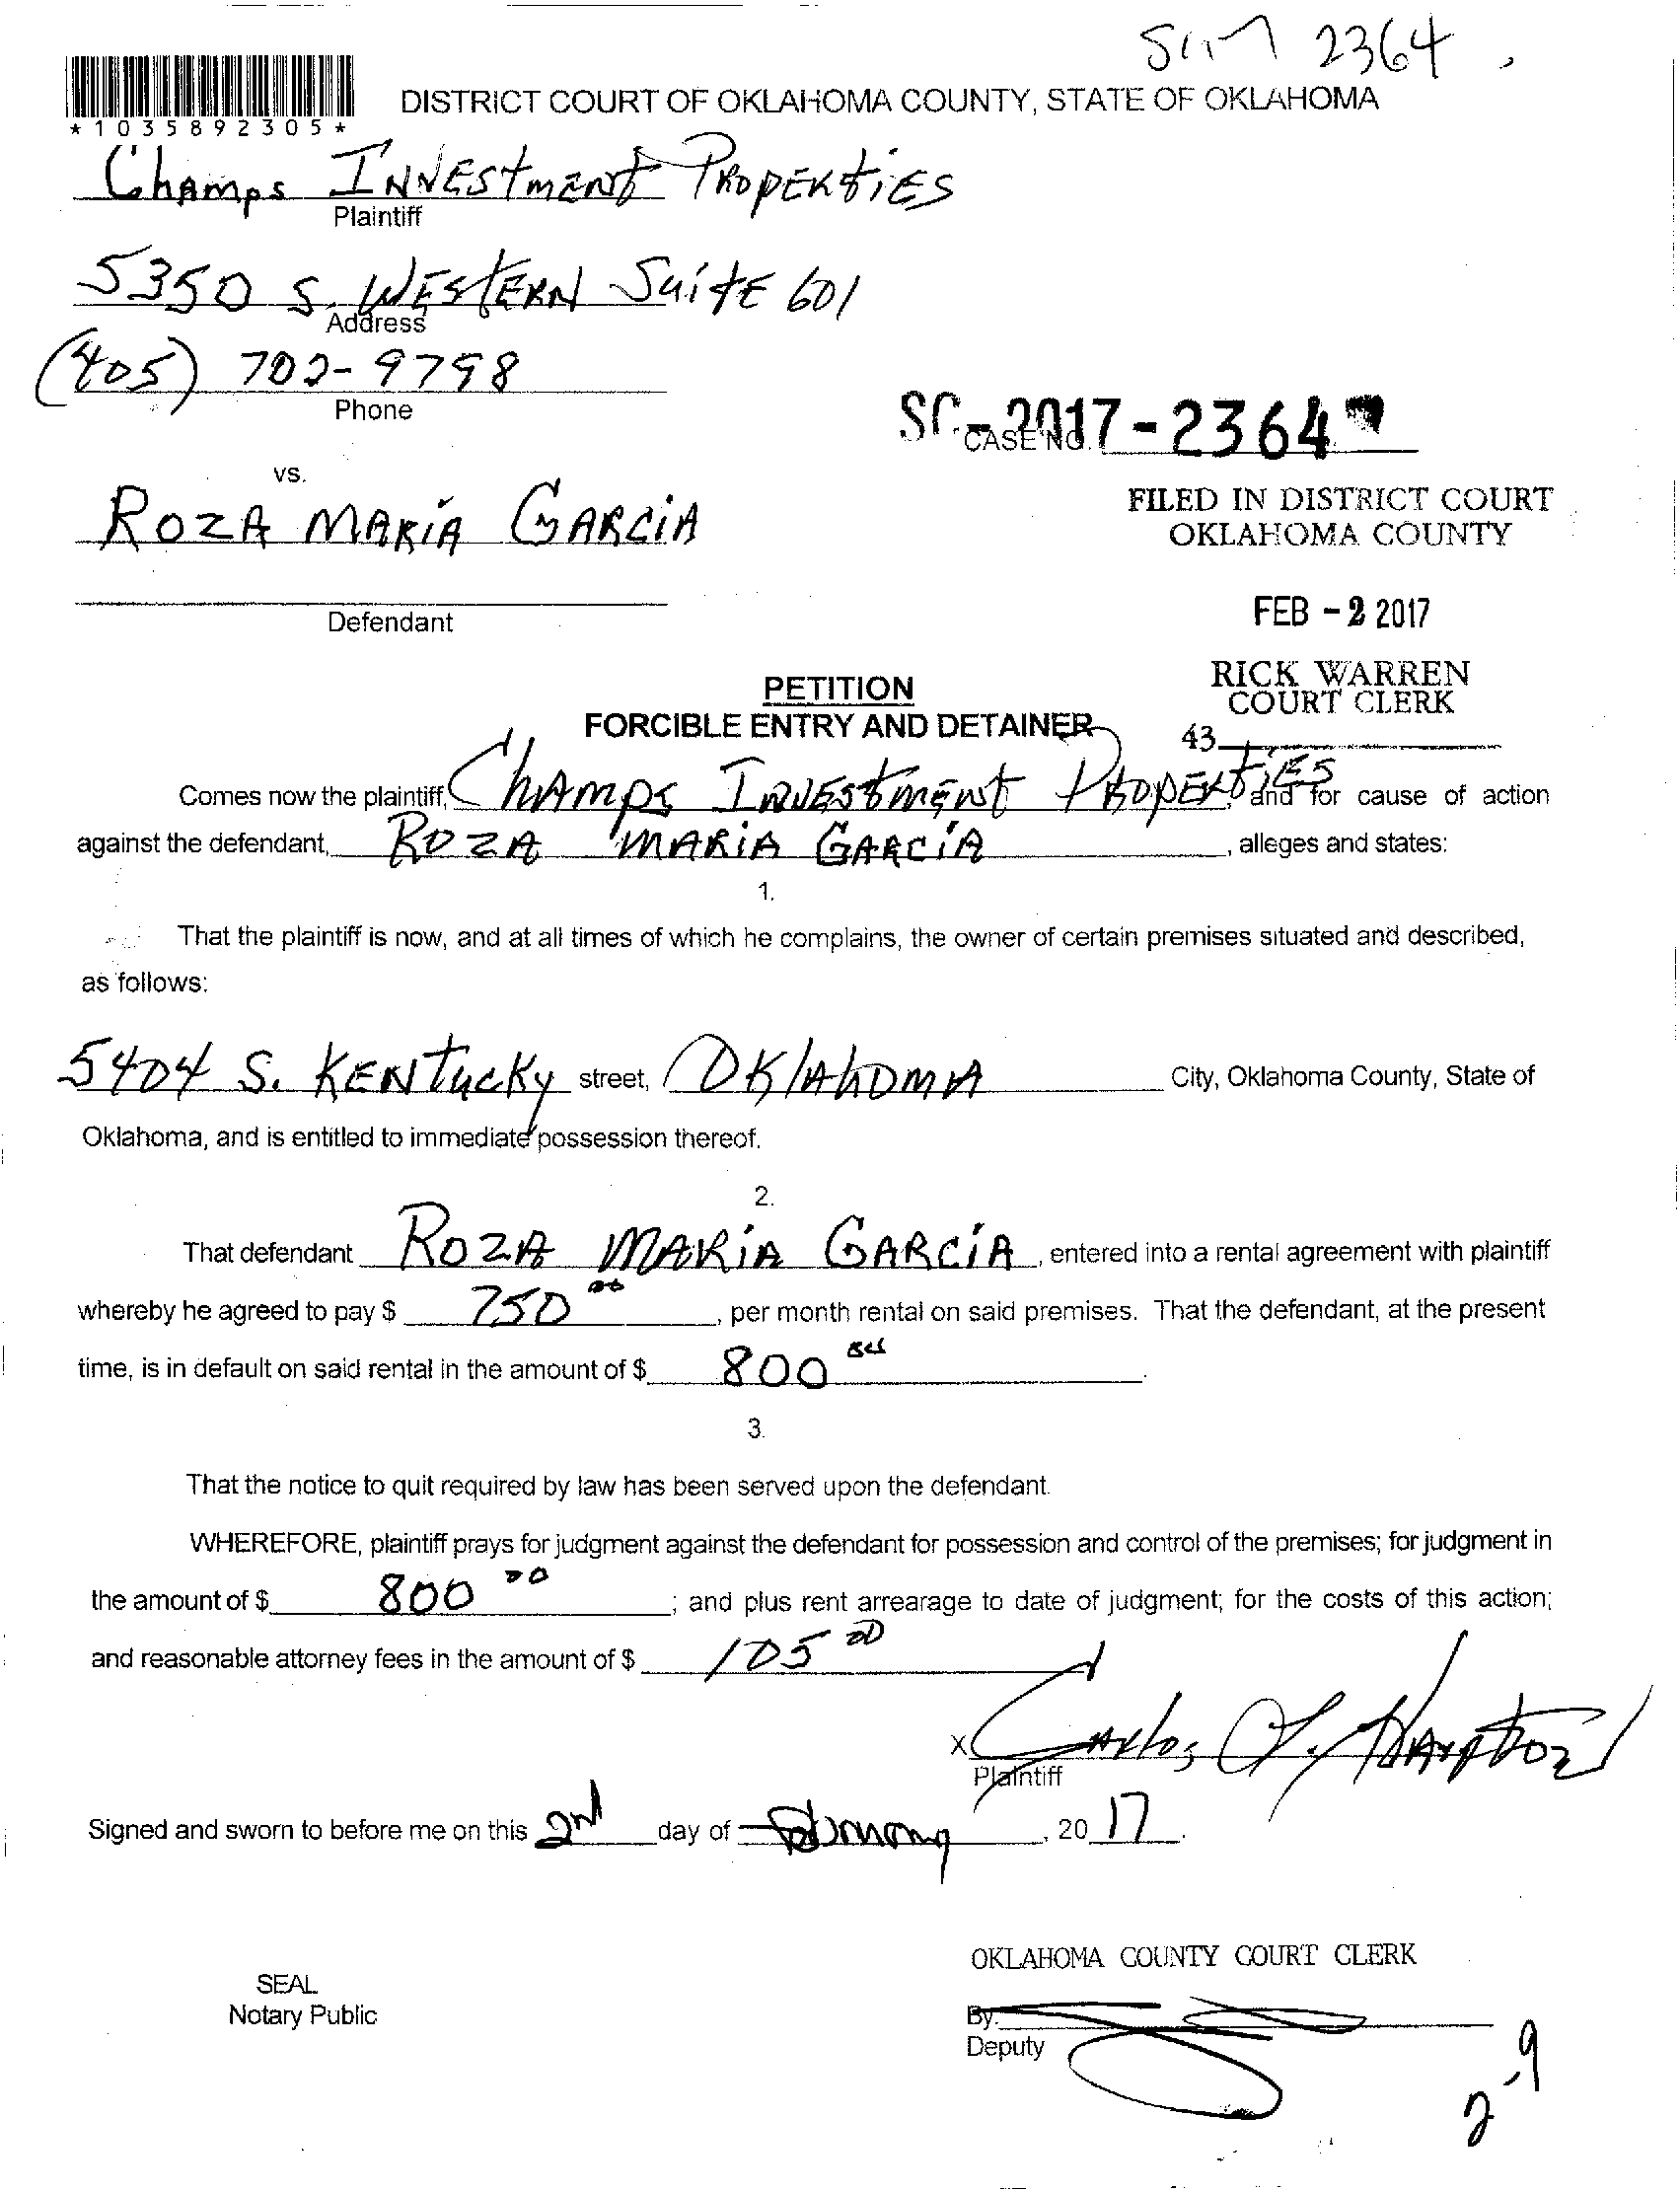 SC17 2364
*1035892305*
DISTRICT COURT OF OKLAHOMA COUNTY, STATE OF OKLAHOMA
Champs Investment Properties
Plaintiff
5350 S. Western Suite 601
Address
(405) 702-9798
Phone
SC-2017-2364
CASE NO.
vs.
Roza Maria Garcia
Defendant
FILED IN DISTRICT COURT
OKLAHOMA COUNTY
FEB - 2 2017
RICK WARREN
COURT CLERK
43
PETITION
FORCIBLE ENTRY AND DETAINER
Comes now the plaintiff, Champs Investment Properties, and for cause of action
against the defendant, Roza Maria Garcia, alleges and states:
1.
That the plaintiff is now, and at all times of which he complains, the owner of certain premises situated and described,
as follows:
5404 S. Kentucky street, Oklahoma City, Oklahoma County, State of
Oklahoma, and is entitled to immediate possession thereof.
2.
That defendant Roza Maria Garcia, entered into a rental agreement with plaintiff
whereby he agreed to pay $ 750 00, per month rental on said premises. That the defendant, at the present
time, is in default on said rental in the amount of $ 800.
3.
That the notice to quit required by law has been served upon the defendant.
WHEREFORE, plaintiff prays for judgment against the defendant for possession and control of the premises; for judgment in
the amount of $ 800 00; and plus rent arrearage to date of judgment; for the costs of this action;
and reasonable attorney fees in the amount of $ 105 00
x Carlos L. Hampton
Plaintiff
Signed and sworn to before me on this 2nd day of February, 20 17.
OKLAHOMA COUNTY COURT CLERK
SEAL
Notary Public
By:
Deputy
2-9